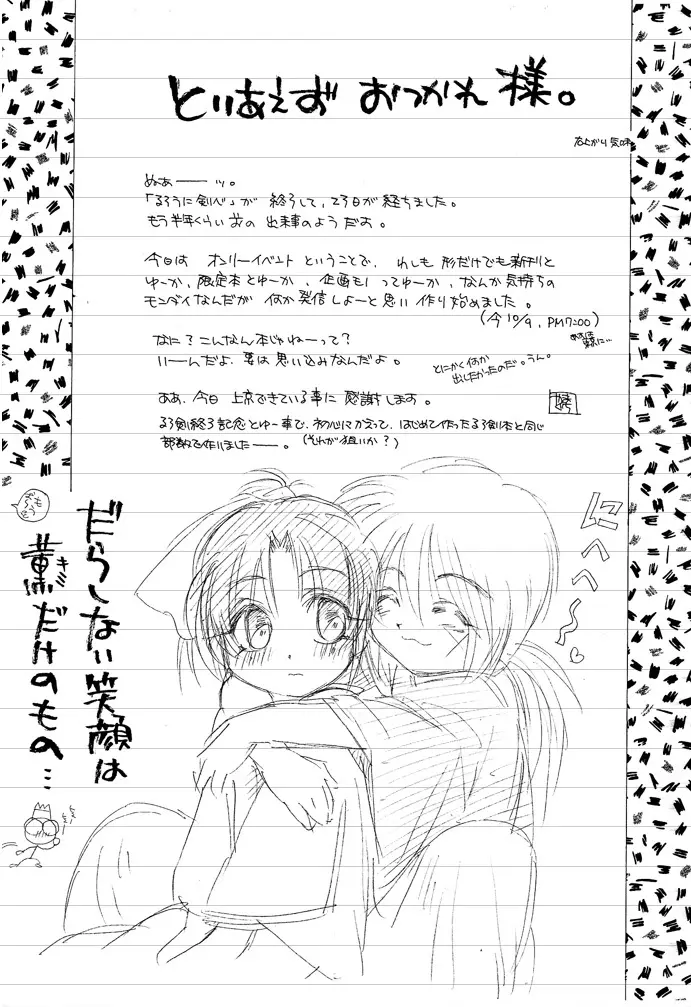 とりあえず おつかれ 様。
右上がり気味
ぬぁーーッ。
「るろうに剣心」が 終了して、23日が経ちました。
もう半年くらい前の 出来事のようだお。
今日は オンリーイベント ということで、 わしも 形だけでも新刊と
ゆーか、限定本とゆーか、企画もりってゆーか、なんか気持ちの
モンダイなんだが 何か発信しよーと思い 作り始めました。
(今 10/9、PM7:00)
なに？こんなん本じゃねーって？
いーんだよ、要は思い込みなんだよ。
とにかく何か
出したかったのだ。うん。
ああ、今日 上京できている事に 感謝します。
るろ剣終了記念とゆー事で、初心にかえって、はじめて作ったるろ剣本と同じ
部数を作りましたーー。(それが狙いか？)
にへへへ〜♡
だらしない笑顔は
薫だけのもの…
キミ